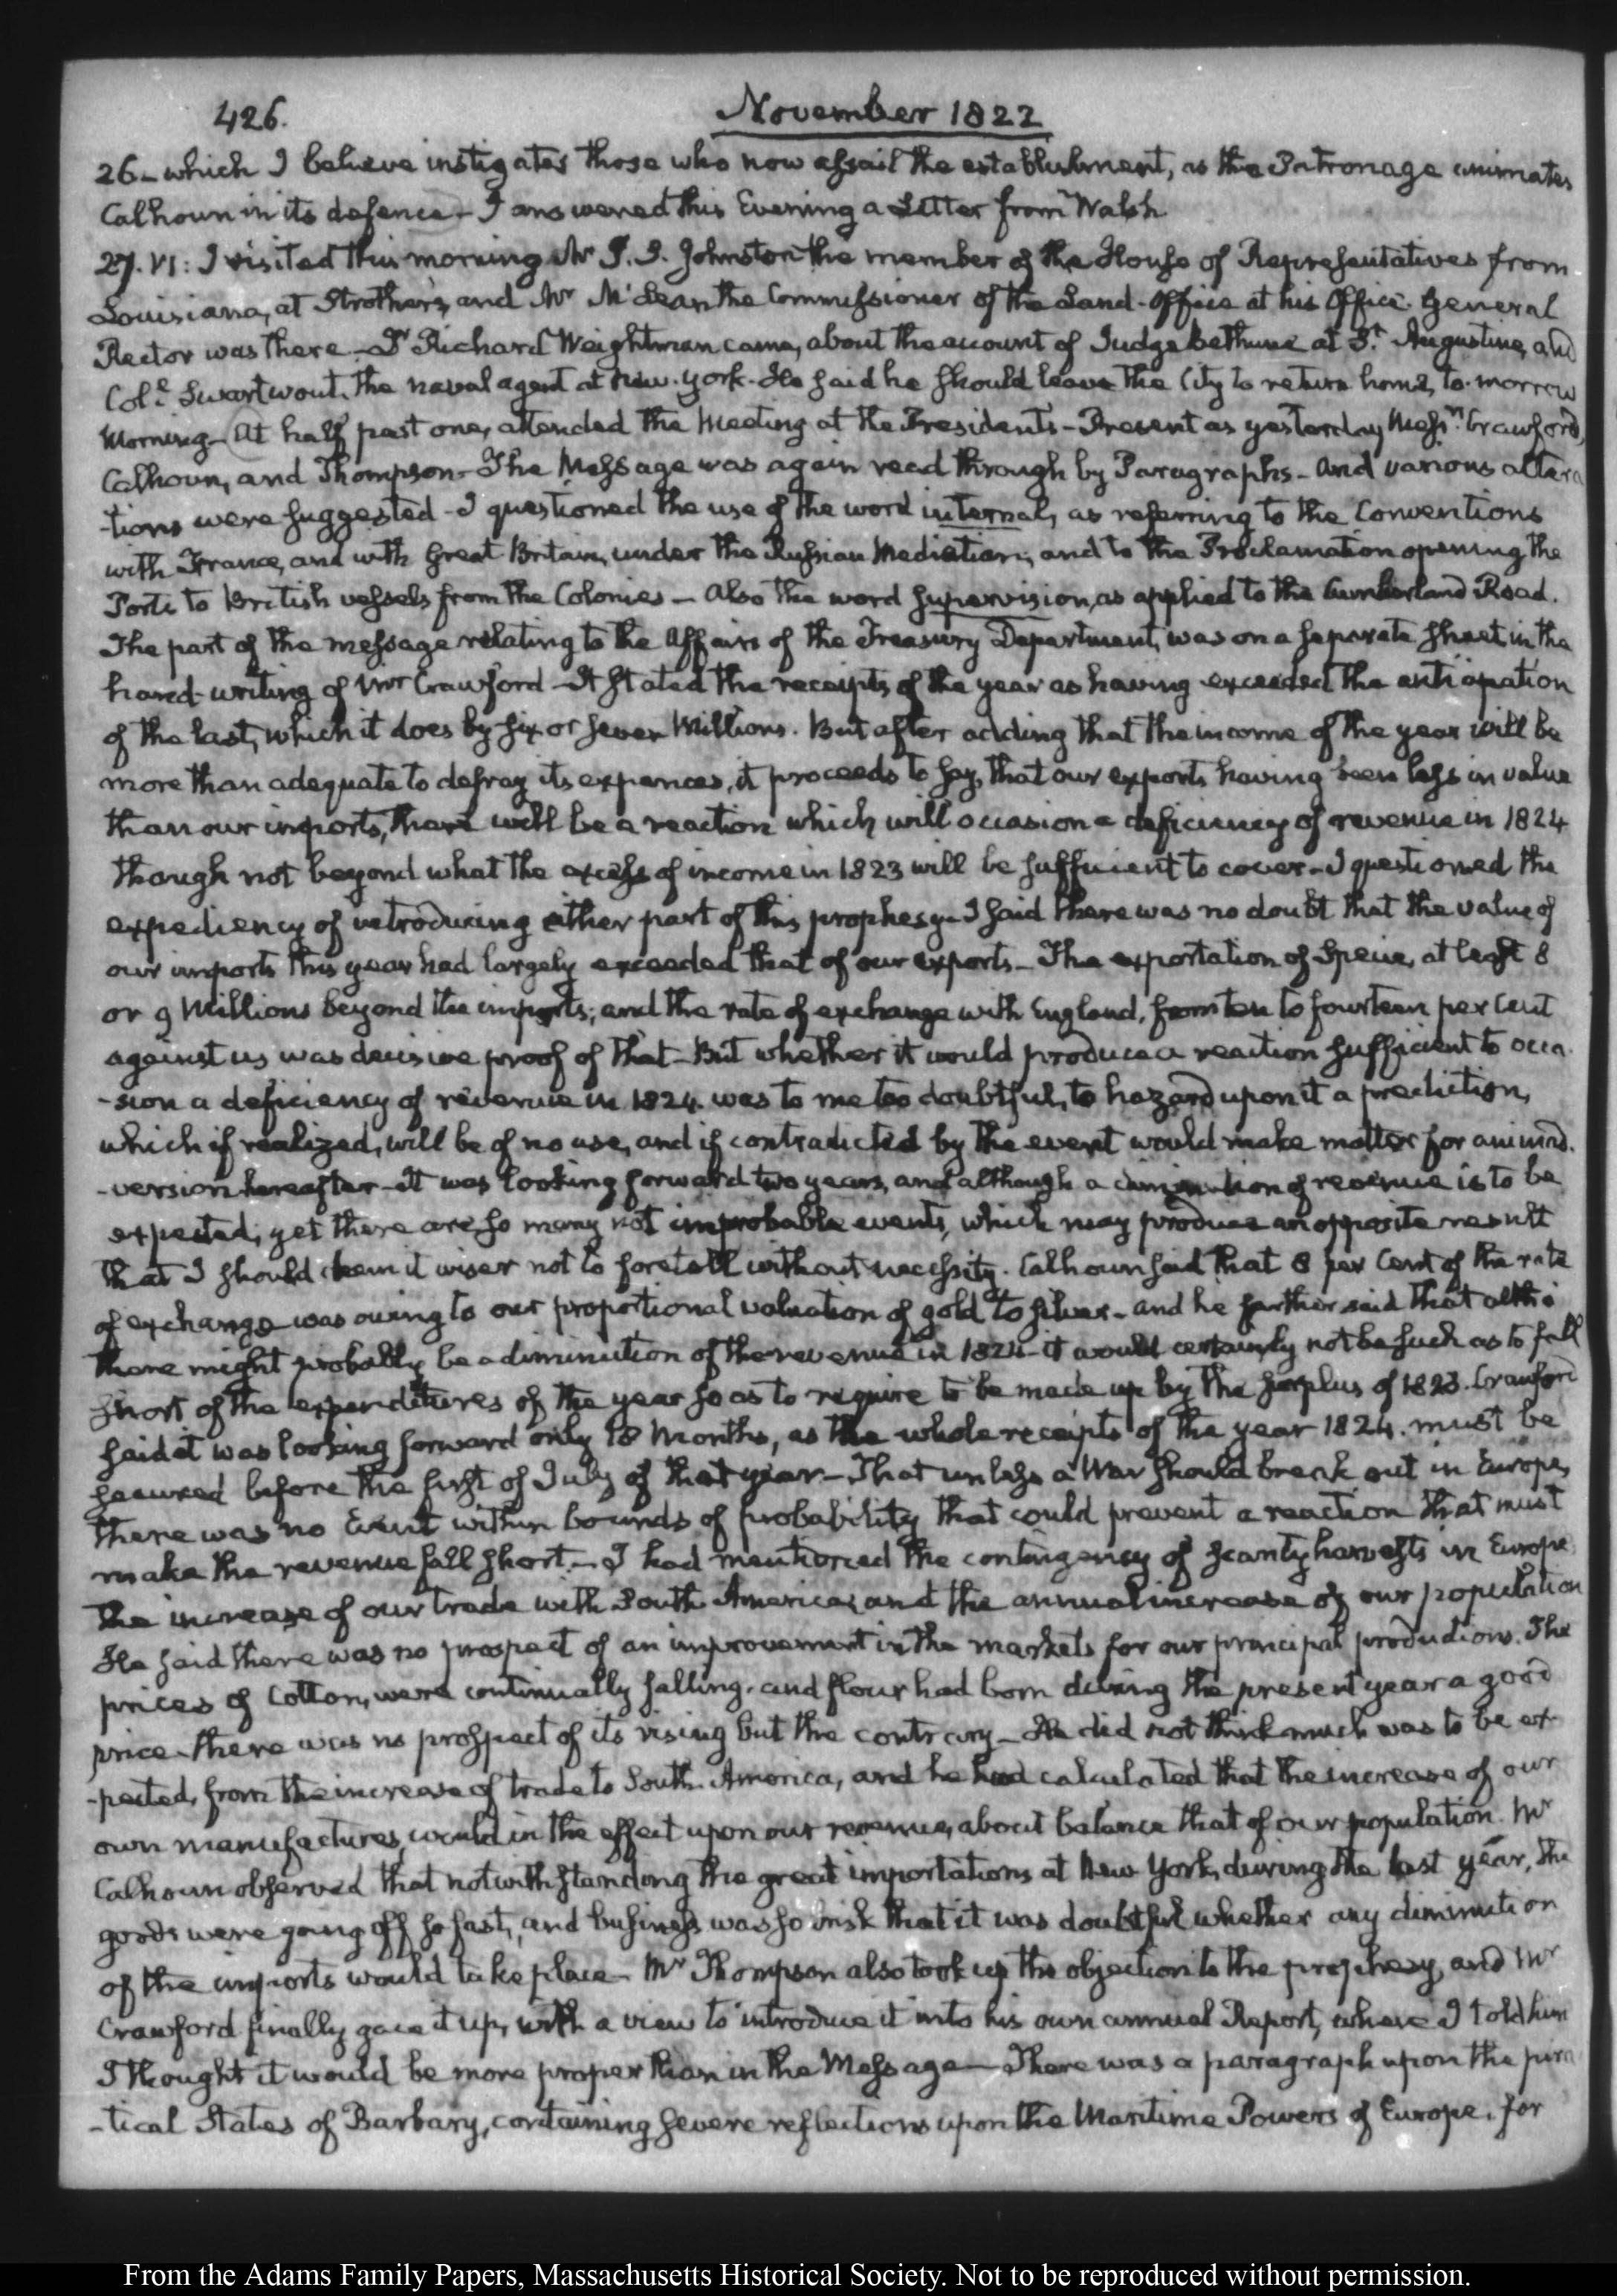 426.
November 1822
26 - which I believe instigates those who now assail the establishment, as the Patronage animates
Calhoun in its defence - I answered this Evening a Letter from Walsh
27. VI: I visited this morning Mr J. S. Johnston the member of the House of Representatives from
Louisiana, at Strother's, and Mr McLean the Commissioner of the Land-Office at his Office. General
Rector was there - Dr Richard Weightman came, about the account of Judge Bethune at St. Augustine, and
Coll. Swartwout, the naval agent at New-York. He said he should leave the City to return home, to-morrow
Morning - At half past one, attended the Meeting at the Presidents - Present as yesterday Messrs. Crawford,
Calhoun, and Thompson - The Message was again read through by Paragraphs - and various altera
-tions were suggested - I questioned the use of the word internal, as referring to the Conventions
with France, and with Great Britain, under the Russian Mediation; and to the Proclamation opening the
Ports to British vessels from the Colonies - Also the word supervision, as applied to the Cumberland Road.
The part of the message relating to the Affairs of the Treasury Department, was on a separate sheet in the
hand-writing of Mr Crawford - It stated the receipts of the year as having exceeded the anticipation
of the last, which it does by six or seven Millions. But after adding that the income of the year will be
more than adequate to defray its expences, it proceeds to say, that our exports having been less in value
than our imports, there will be a reaction which will occasion a deficiency of revenue in 1824
though not beyond what the excess of income in 1823 will be sufficient to cover - I questioned the
expediency of introducing either part of this prophesy - I said there was no doubt that the value of
our imports this year had largely exceeded that of our exports - The exportation of Specie, at least 8
or 9 Millions beyond the imports; and the rate of exchange with England, from ten to fourteen per Cent
against us was decisive proof of that - But whether it would produce a reaction sufficient to occa
-sion a deficiency of revenue in 1824. was to me too doubtful, to hazard upon it a prediction,
which if realized, will be of no use, and if contradicted by the event would make matter for animad-
-version hereafter - It was looking forward two years, and although a diminution of revenue is to be
expected; yet there are so many not improbable events, which may produce an opposite result
that I should deem it wiser not to foretell without necessity. Calhoun said that 8 per Cent of the rate
of exchange was owing to our proportional valuation of gold to silver - and he further said that altho'
there might probably be a diminution of the revenue in 1824 - it would certainly not be such as to fall
short of the expenditures of the year so as to require to be made up by the surplus of 1823. Crawford
said it was looking forward only 18 Months, as the whole receipts of the year 1824. must be
secured before the first of July of that year - That unless a War should break out in Europe,
there was no Event within bounds of probability that could prevent a reaction that must
make the revenue fall short - I had mentioned the contingency of scanty harvests in Europe
the increase of our trade with South-America; and the annual increase of our population
He said there was no prospect of an improvement in the markets for our principal productions. The
prices of Cotton, were continually falling. and flour had born during the present year a good
price - there was no prospect of its rising but the contrary - He did not think much was to be ex-
-pected, from the increase of trade to South-America, and he had calculated that the increase of our
own manufactures, would in the effect upon our revenue, about balance that of our population. Mr
Calhoun observed that notwithstanding the great importations at New York, during the last year, the
goods were going off so fast, and business was so brisk that it was doubtful whether any diminution
of the imports would take place - Mr Thompson also took up the objection to the prophesy, and Mr
Crawford finally gave it up, with a view to introduce it into his own annual Report, where I told him
I thought it would be more proper than in the Message - There was a paragraph upon the pira
-tical States of Barbary, containing severe reflections upon the Maritime Powers of Europe, for
From the Adams Family Papers, Massachusetts Historical Society. Not to be reproduced without permission.